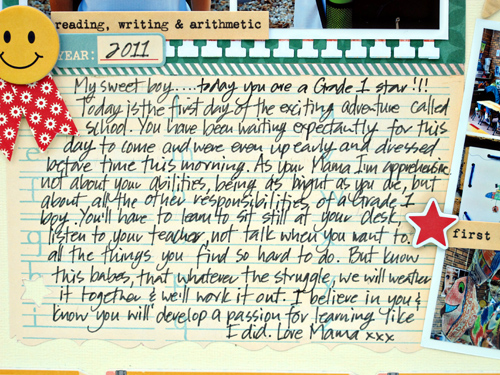 reading, writing & arithmetic
YEAR: 2011
My sweet boy.....today you are a Grade 1 star!!!
Today is the first day of the exciting adventure called
school. You have been waiting expectantly for this
day to come and were even up early and dressed
before time this morning. As your Mama I'm apprehensive
not about your abilities, being as bright as you are, but
about all the other responsibilities of a Grade 1
boy. You'll have to learn to sit still at your desk,
listen to your teacher, not talk when you want to..
all the things you find so hard to do. But know
this babes, that whatever the struggle, we will weather
it together & we'll work it out. I believe in you &
know you will develop a passion for learning like
I did. Love Mama xxx
first